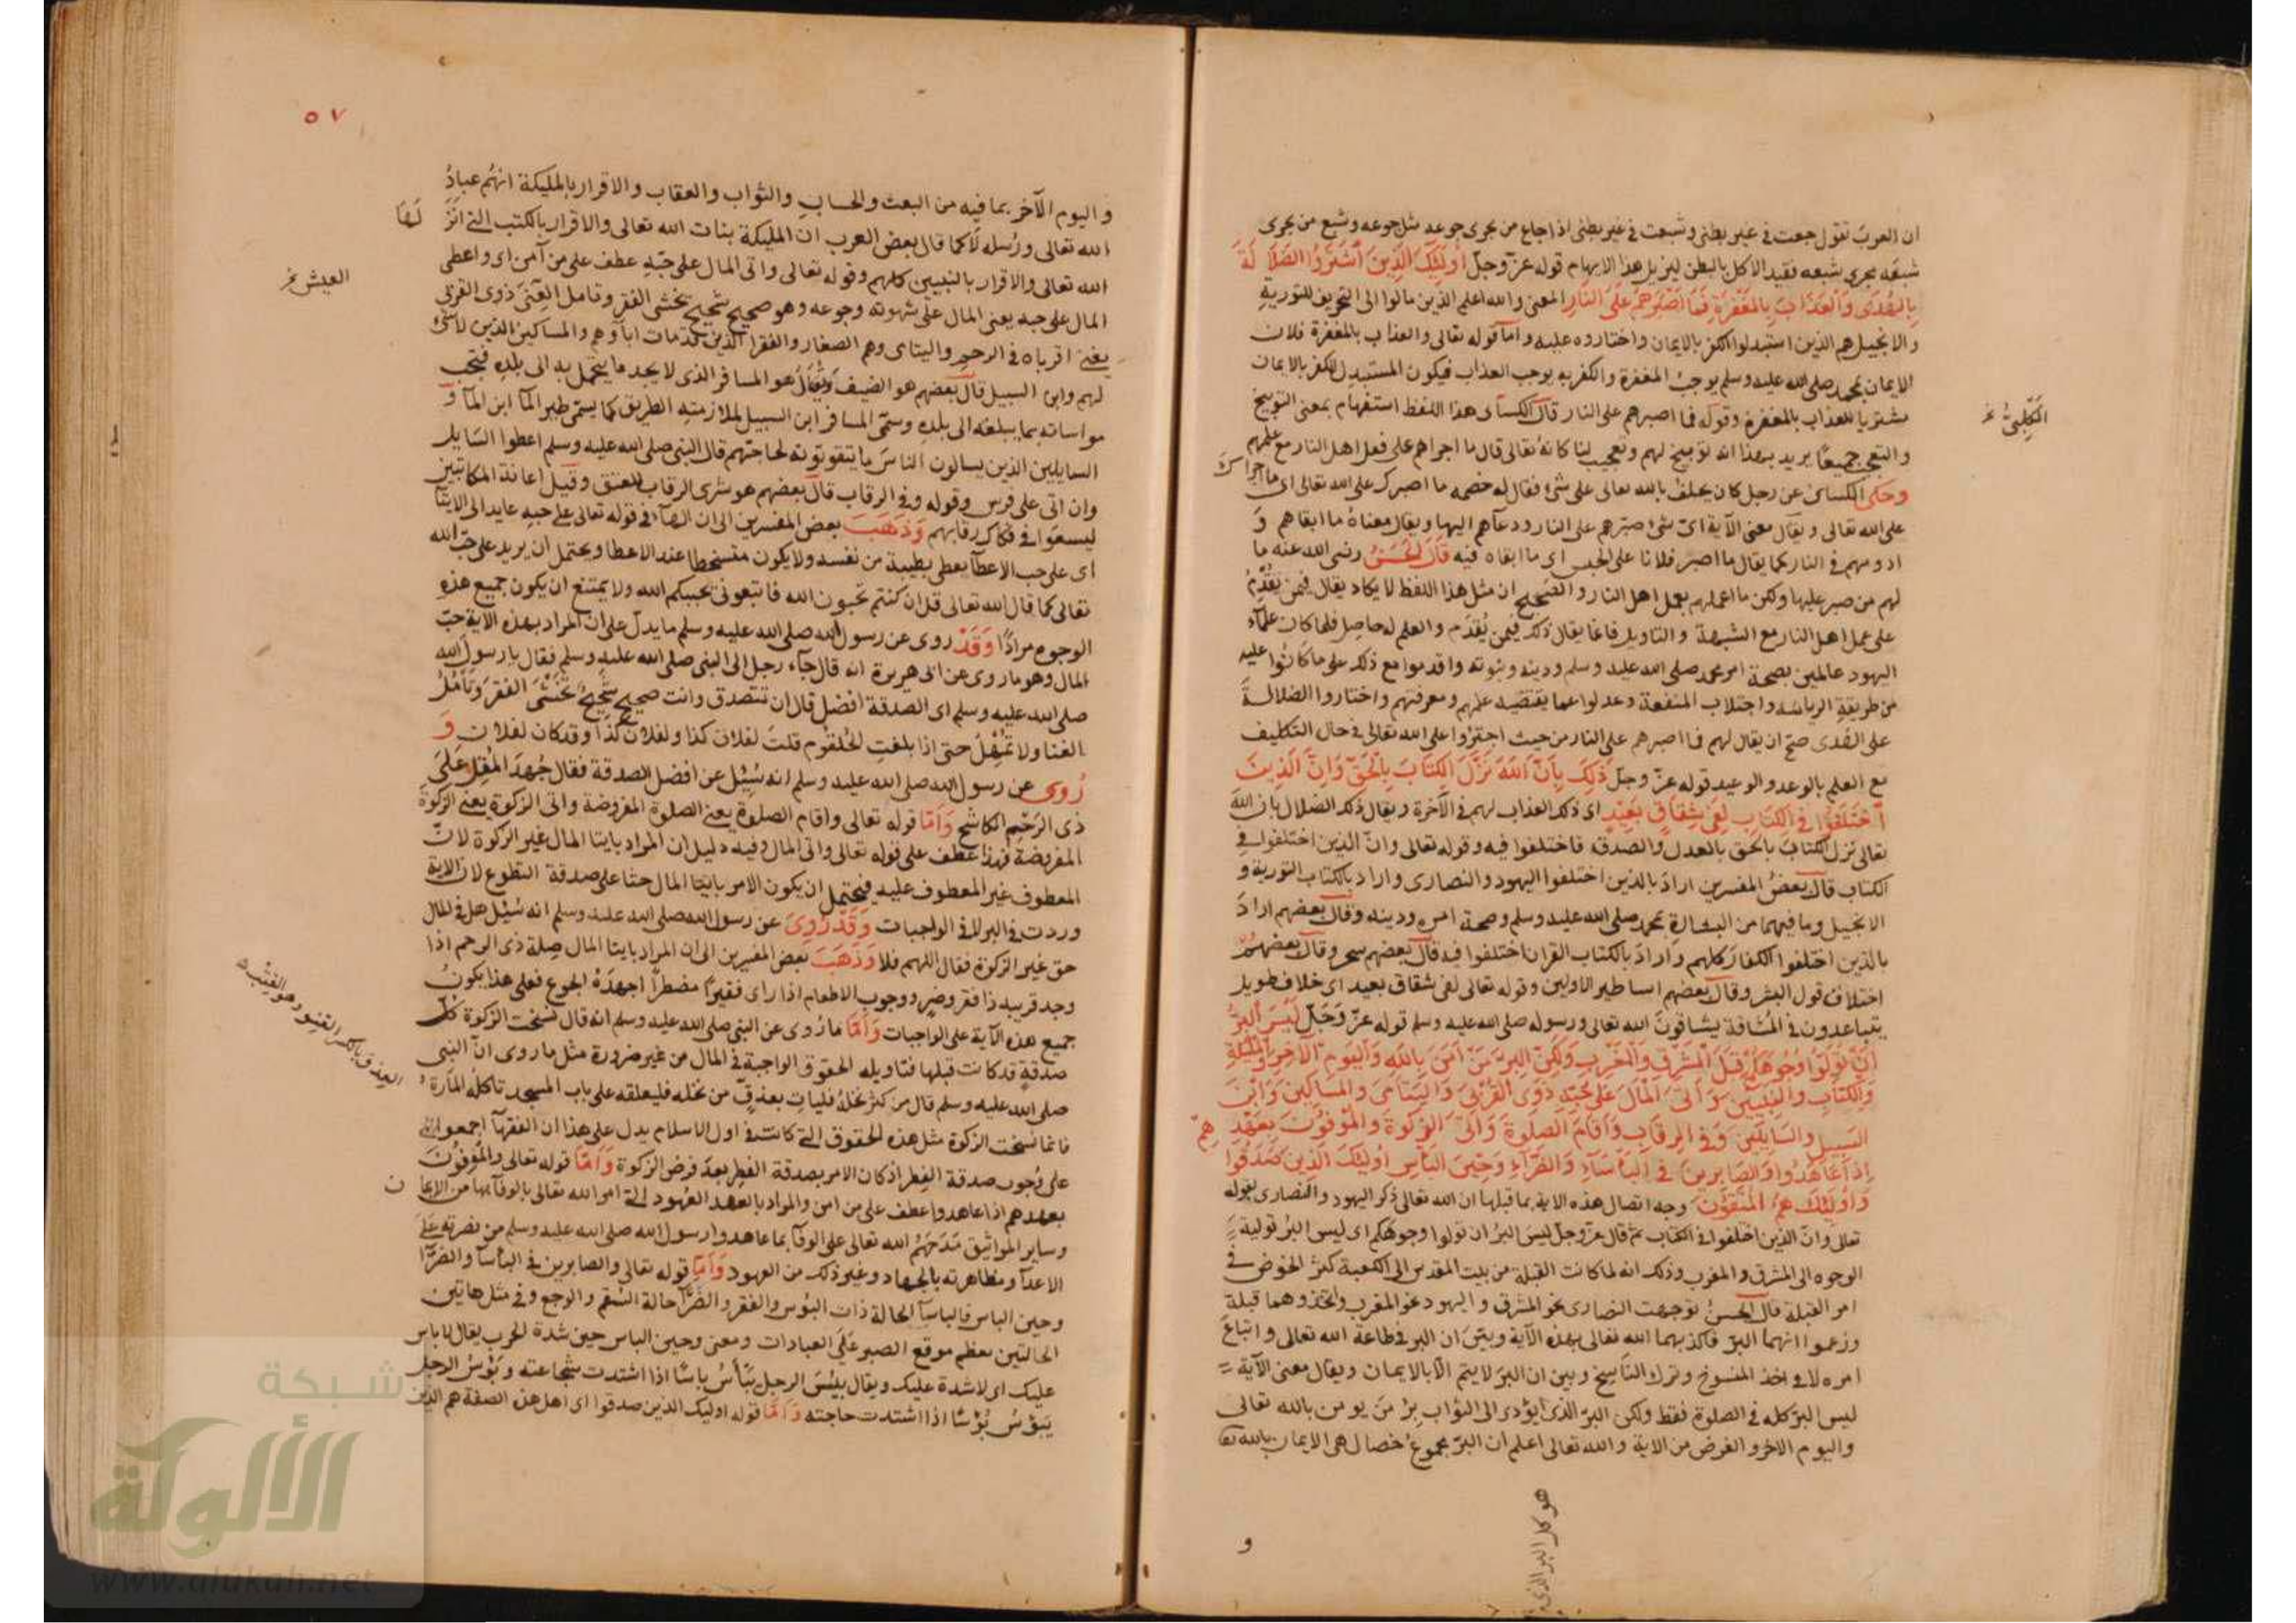 ان العرب تقول جعت في غير بطني وشبعت في غير بطني اذا جاع من يجرى جوعه مثل جوعه وشبع من يجرى
شبعه مجرى شبعه فقيد الاكل بالبطن ليزيل هذا الابهام قوله عز وجل اولئك الذين اشتروا الضلالة
بالهدى والعذاب بالمغفرة فما اصبرهم على النار المعنى والله اعلم الذين مالوا الى التحريف للتورية
والانجيل هم الذين استبدلوا الكفر بالايمان واختاروه عليه واما قوله تعالى والعذاب بالمغفرة فلان
الايمان بمحمد صلى الله عليه وسلم يوجب المغفرة والكفر به يوجب العذاب فيكون المستبدل للكفر بالايمان
مشتريا للعذاب بالمغفرة وقوله فما اصبرهم على النار قال الكسائى هذا اللفظ استفهام بمعنى التوبيخ
الكلبىّ
والتعجب جميعا يريد بهذا انه توبيخ لهم وتعجيب لنا كانه تعالى قال ما اجراهم على فعل اهل النار مع علمهم
وحكى الكسائى عن رجل كان يحلف بالله تعالى على شئ فقال له خصمه ما اصبرك على الله تعالى اى ما اجراك
على الله تعالى ويقال معنى الآية اىّ شئ صبرهم على النار ودعآهم اليها ويقال معناه ما ابقاهم و
ادومهم في النار كما يقال ما اصبر فلانا على الحبس اى ما ابقاه فيه قال الحسن رضى الله عنه ما
لهم من صبر عليها ولكن ما اعملهم بعمل اهل النار والصحيح ان مثل هذا اللفظ لا يكاد يقال فيمن يقدم
على عمل اهل النار مع الشبهة والتاويل فانما يقال ذلك فيمن يقدم والعلم له حاصل فلما كان علمآء
اليهود عالمين بصحة امر محمد صلى الله عليه وسلم ودينه ونبوته واقدموا مع ذلك على ما كانوا عليه
من طريقة الرياسه واجتلاب المنفعة وعدلوا عما يقتضيه علمهم ومعرفتهم واختاروا الضلالة
على الهدى صح ان يقال لهم فما اصبرهم على النار من حيث اجترؤا على الله تعالى في حال التكليف
مع العلم بالوعد والوعيد قوله عز وجل ذلك بان الله نزل الكتاب بالحق وان الذين
اختلفوا في الكتاب لفى شقاق بعيد اى ذلك العذاب لهم في الآخرة ويقال ذلك الضلال بان الله
تعالى نزل الكتاب بالحق بالعدل والصدق فاختلفوا فيه وقوله تعالى وان الذين اختلفوا في
الكتاب قال بعض المفسرين اراد بالذين اختلفوا اليهود والنصارى واراد بالكتاب التورية و
الانجيل وما فيهما من البشارة بمحمد صلى الله عليه وسلم وصحة امره ودينه وقال بعضهم اراد
بالذين اختلفوا الكفار كلهم واراد بالكتاب القران اختلفوا فيه قال بعضهم سحر وقال بعضهم
اختلاف قول البشر وقال بعضهم اساطير الاولين وقوله تعالى لفى شقاق بعيد اى خلاف طويل
يتباعدون في المشاقة يشاقون الله تعالى ورسوله صلى الله عليه وسلم قوله عز وجل ليس البر
ان تولوا وجوهكم قبل المشرق والمغرب ولكن البر من امن بالله واليوم الآخر والمليكة
والكتاب والنبيين وآتى المال على حبه ذوى القربى واليتامى والمساكين وابن
السبيل والسايلين وفي الرقاب واقام الصلوة وآتى الزكوة والموفون بعهدهم
اذا عاهدوا والصابرين في الباسآء والضرآء وحين الباس اولئك الذين صدقوا
واولئك هم المتقون وجه اتصال هذه الاية بما قبلها ان الله تعالى ذكر اليهود والنصارى بقوله
تعالى وان الذين اختلفوا في الكتاب ثم قال عز وجل ليس البر ان تولوا وجوهكم اى ليس البر تولية
الوجوه الى المشرق والمغرب وذلك انه لما كانت القبلة من بيت المقدس الى الكعبة كثر الخوض في
امر القبلة قال الحسن توجهت النصارى نحو المشرق واليهود نحو المغرب واتخذوهما قبلة
وزعموا انهما البر فاكذبهما الله تعالى بهذه الآية وبين ان البر في طاعة الله تعالى واتباع
امره لا في اخذ المنسوخ وترك الناسخ وبين ان البر لا يتم الا بالايمان ويقال معنى الآية
ليس البر كله في الصلوة فقط ولكن البر الذى يؤدى الى الثواب بر من يومن بالله تعالى
واليوم الاخر والغرض من الاية والله تعالى اعلم ان البر مجموع خصال هى الايمان بالله تعا
هو كل البر الذى
و
٥٧
واليوم الآخر بما فيه من البعث والحساب والثواب والعقاب والاقرار بالمليكة انهم عباد
الله تعالى ورسله لا كما قال بعض العرب ان المليكة بنات الله تعالى والاقرار بالكتب التى انزلها
الله تعالى والاقرار بالنبيين كلهم وقوله تعالى واتى المال على حبه عطف على من آمن اى واعطى
المال على حبه يعنى المال على شهوته وجوعه وهو صحيح شحيح يخشى الفقر وتامل الغنى ذوى القربى
العيش
يعنى اقرباه في الرحم واليتامى وهم الصغار والفقرا الذين قد مات اباوهم والمساكين الذين لا شئ
لهم وابن السبيل قال بعضهم هو الضيف ويقال هو المسافر الذى لا يجد ما يتحمل به الى بلده فيجب
مواساته بما يبلغه الى بلده وسمى المسافر ابن السبيل لملازمته الطريق كما يسمى طير المآ ابن المآ و
السايلين الذين يسالون الناس ما يتقوتونه لحاجتهم قال النبى صلى الله عليه وسلم اعطوا السايل
وان اتى على فرس وقوله وفي الرقاب قال بعضهم هو شرى الرقاب للعتق وقيل اعانة المكاتبين
ليسعوا في فكاك رقابهم وذهب بعض المفسرين الى ان الهآ في قوله تعالى على حبه عايد الى الايتآ
اى على حب الاعطآ يعطى بطيبة من نفسه ولا يكون متسخطا عند الاعطا ويحتمل ان يريد على حب الله
تعالى كما قال الله تعالى قل ان كنتم تحبون الله فاتبعونى يحببكم الله ولا يمتنع ان يكون جميع هذه
الوجوه مرادا وقد روى عن رسول الله صلى الله عليه وسلم ما يدل على ان المراد بهذه الاية حب
المال وهو ما روى عن ابى هريرة انه قال جآء رجل الى النبى صلى الله عليه وسلم فقال يا رسول الله
صلى الله عليه وسلم اى الصدقة افضل قال ان تتصدق وانت صحيح شحيح تخشى الفقر وتامل
الغنا ولا تمهل حتى اذا بلغت الحلقوم قلت لفلان كذا ولفلان كذا وقد كان لفلان و
روى عن رسول الله صلى الله عليه وسلم انه سئل عن افضل الصدقة فقال جهد المقل على
ذى الرحم الكاشح واما قوله تعالى واقام الصلوة يعنى الصلوة المفروضة واتى الزكوة يعنى الزكوة
المفروضة فهذا عطف على قوله تعالى واتى المال وفيه دليل ان المراد بايتا المال غير الزكوة لان
المعطوف غير المعطوف عليه فيحتمل ان يكون الامر بايتا المال حثا على صدقة التطوع لان الاية
وردت في البر لا في الواجبات وقد روى عن رسول الله صلى الله عليه وسلم انه سئل هل في المال
حق غير الزكوة فقال اللهم فلا وذهب بعض المفسرين الى ان المراد بايتا المال صلة ذى الرحم اذا
وجد قريبه ذا فقر وضر ووجوب الاطعام اذا راى فقيرا مضطرا اجهده الجوع فعلى هذا يكون
جميع هذه الآية على الواجبات واما ما روى عن النبى صلى الله عليه وسلم انه قال نسخت الزكوة كل
صدقة قد كانت قبلها فتاويله الحقوق الواجبة في المال من غير ضرورة مثل ما روى ان النبى
العذق بالكسر القنو وهو
صلى الله عليه وسلم قال من كثر نخله فليات بعذق من نخله فليعلقه على باب المسجد تاكله المارة
فانما نسخت الزكوة مثل هذه الحقوق التى كانت في اول الاسلام يدل على هذا ان الفقهآ اجمعوا
على وجوب صدقة الفطر اذ كان الامر بصدقة الفطر بعد فرض الزكوة واما قوله تعالى والموفون
بعهدهم اذا عاهدوا عطف على من امن والمراد بالعهد العهود التى امر الله تعالى بالوفآ بها من الايمان
وساير المواثيق مدحهم الله تعالى على الوفآ بما عاهدوا رسول الله صلى الله عليه وسلم من نصرته على
الاعدآ ومظاهرته بالجهاد وغير ذلك من العهود واما قوله تعالى والصابرين في البأسآ والضرآ
وحين الباس فالباسآ الحالة ذات البؤس والفقر والضرآ حالة السقم والوجع وفي مثل هاتين
الحالتين يعظم موقع الصبر على العبادات ومعنى وحين الباس حين شدة الحرب يقال لا باس
عليك اى لا شدة عليك ويقال بئس الرجل يبأس باسا اذا اشتدت شجاعته وبؤس الرجل
يبؤس بؤسا اذا اشتدت حاجته واما قوله اوليك الذين صدقوا اى اهل هذه الصفة هم الذين
شبكة
الألوكة
www.alukah.net